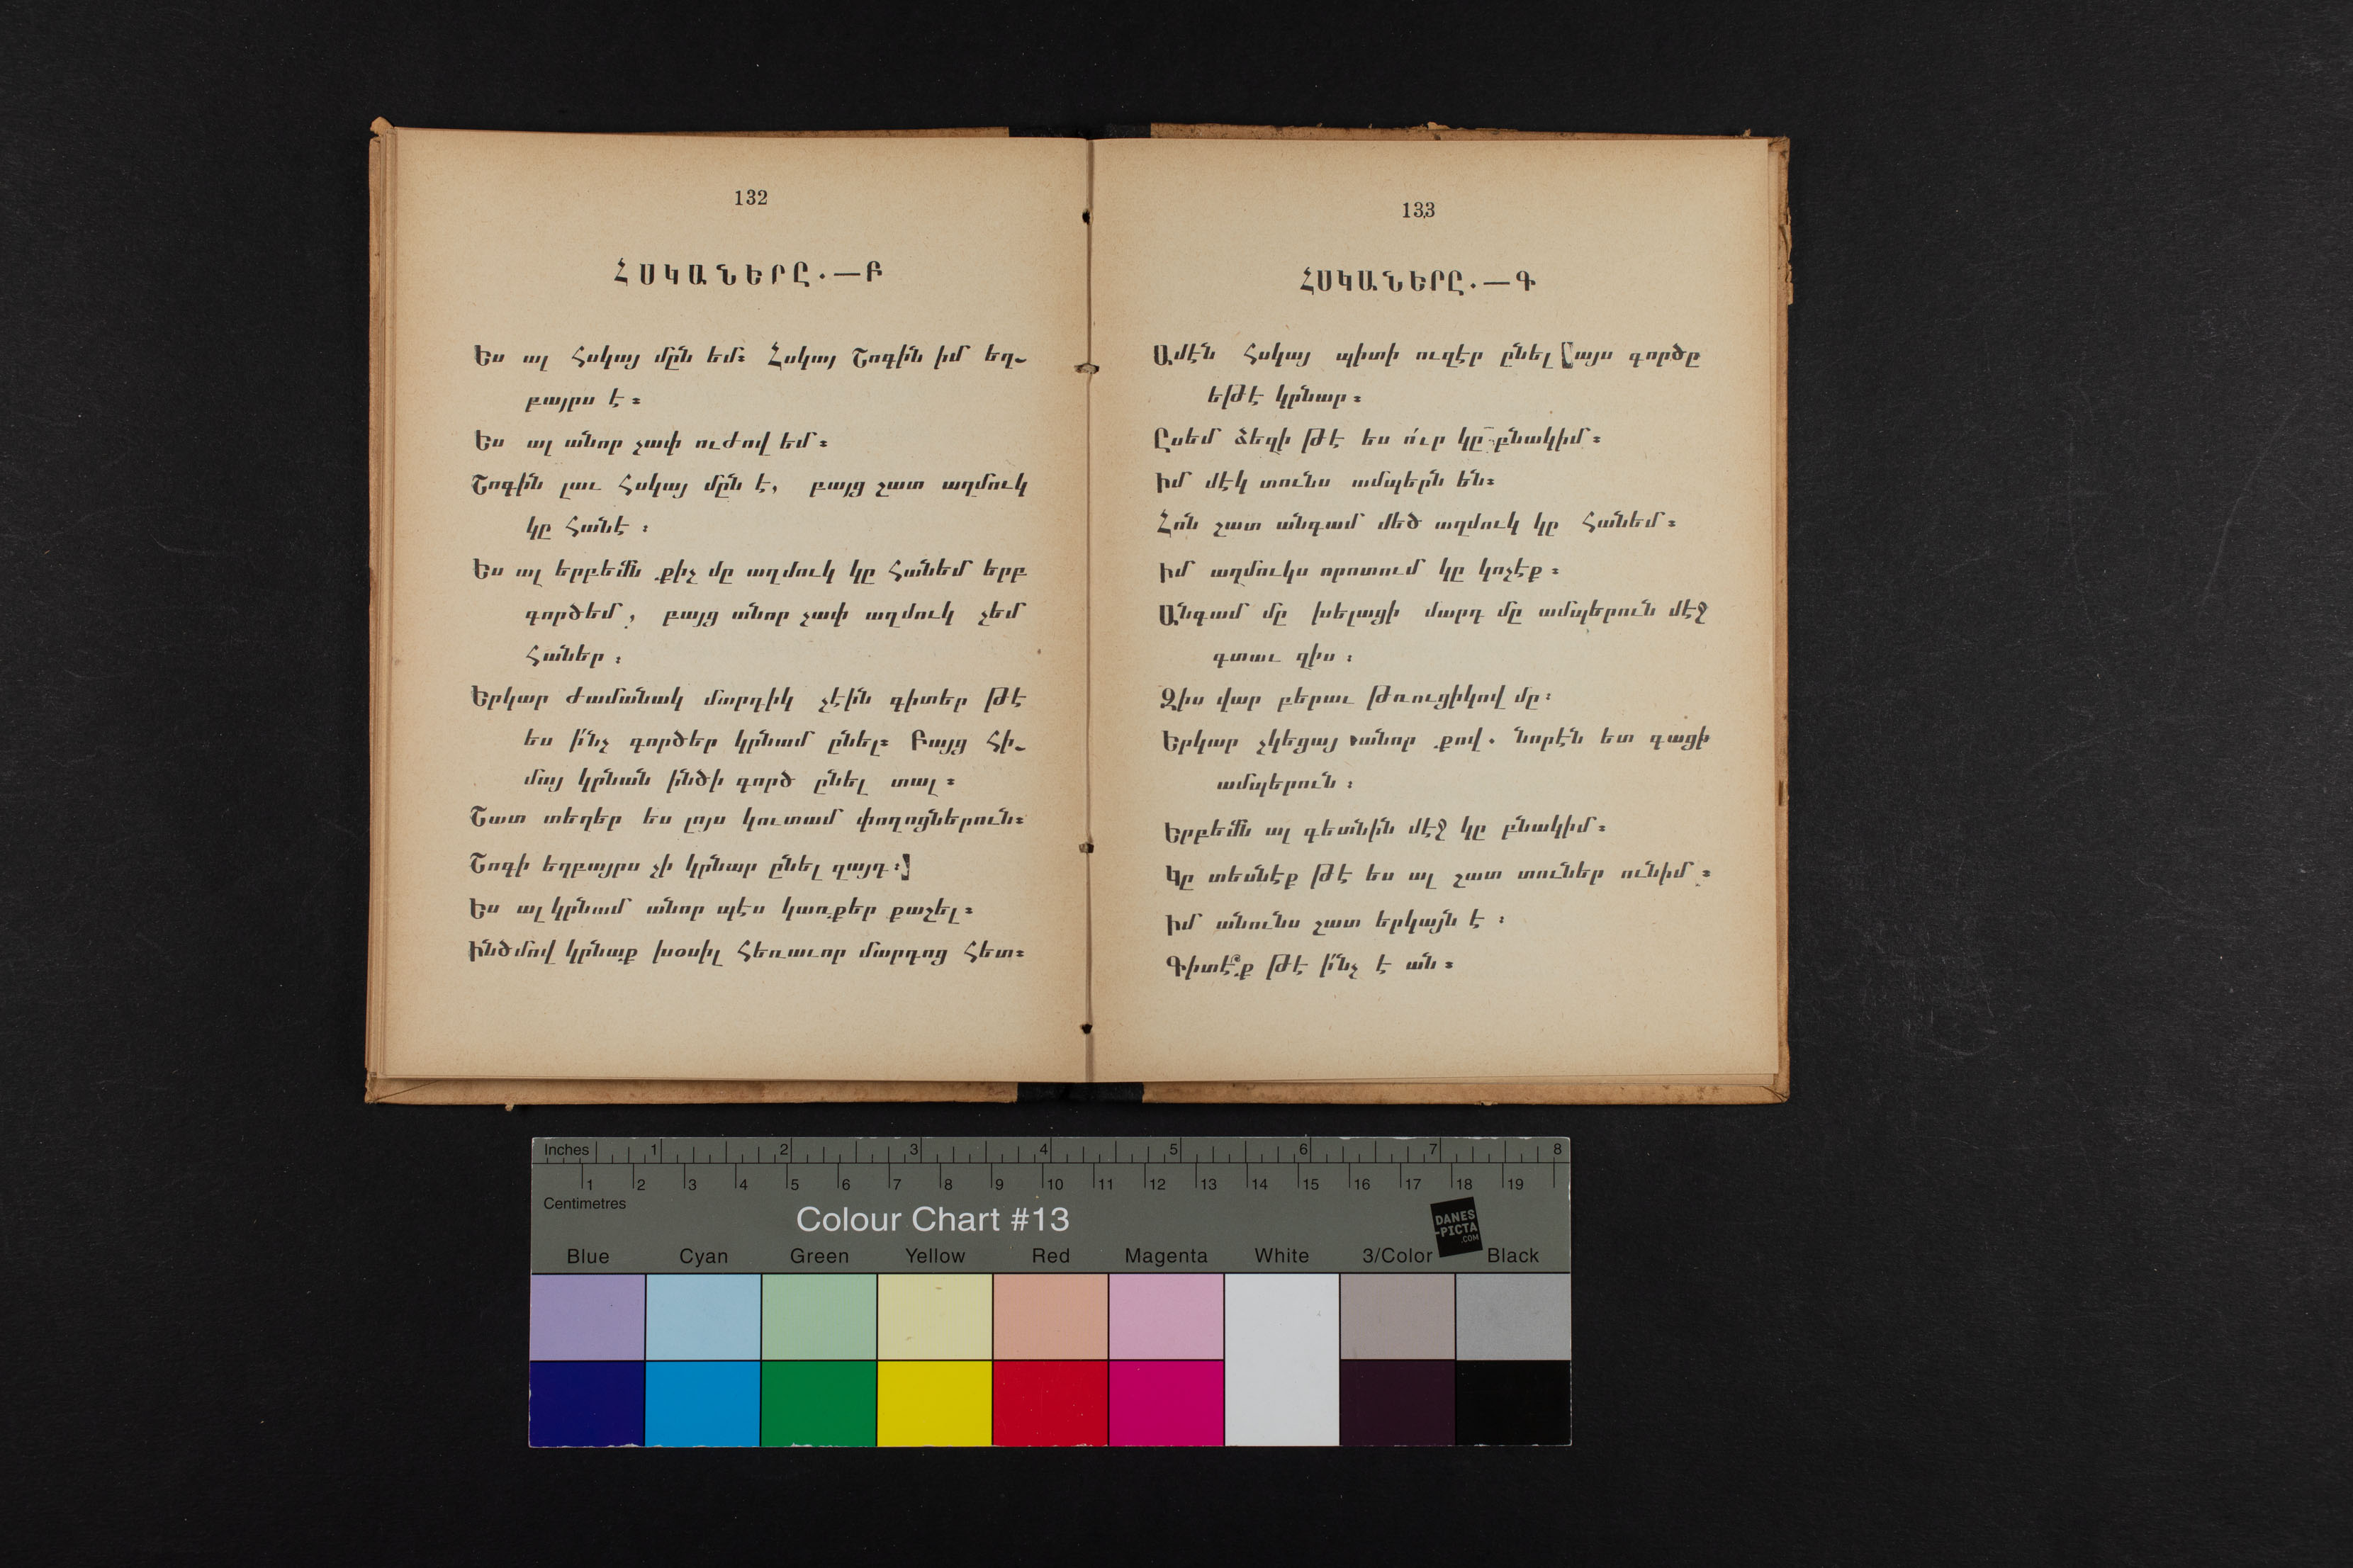 132
ՀՍԿԱՆԵՐԸ.—Բ
Ես ալ Հսկայ մըն եմ։ Հսկայ Շոգին իմ եղ-
բայրս է։
Ես ալ անոր չափ ուժով եմ։
Շոգին լաւ Հսկայ մըն է, բայց շատ աղմուկ
կը հանէ։
Ես ալ երբեմն քիչ մը աղմուկ կը հանեմ երբ
գործեմ, բայց անոր չափ աղմուկ չեմ
հաներ։
Երկար ժամանակ մարդիկ չէին գիտեր թէ
ես ի՛նչ գործեր կրնամ ընել։ Բայց հի-
մայ կրնան ինծի գործ ընել տալ։
Շատ տեղեր ես լոյս կուտամ փողոցներուն։
Շոգի եղբայրս չի կրնար ընել զայդ։
Ես ալ կրնամ անոր պէս կառքեր քաշել։
Ինծմով կրնաք խօսիլ հեռաւոր մարդոց հետ։
133
ՀՍԿԱՆԵՐԸ.—Գ
Ամէն Հսկայ պիտի ուզէր ընել այս գործը
եթէ կրնար։
Ըսեմ ձեզի թէ ես ո՛ւր կը բնակիմ։
Իմ մէկ տունս ամպերն են։
Հոն շատ անգամ մեծ աղմուկ կը հանեմ։
Իմ աղմուկս որոտում կը կոչէք։
Անգամ մը խելացի մարդ մը ամպերուն մէջ
գտաւ զիս։
Զիս վար բերաւ թռուցիկով մը։
Երկար չկեցայ անոր քով. նորէն ետ գացի
ամպերուն։
Երբեմն ալ գետնին մէջ կը բնակիմ։
Կը տեսնէք թէ ես ալ շատ տուներ ունիմ։
Իմ անունս շատ երկայն է։
Գիտէ՞ք թէ ի՛նչ է ան։
Inches 1 2 3 4 5 6 7 8
1 2 3 4 5 6 7 8 9 10 11 12 13 14 15 16 17 18 19
Centimetres
Colour Chart #13
DANES
-PICTA
.COM
Blue Cyan Green Yellow Red Magenta White 3/Color Black